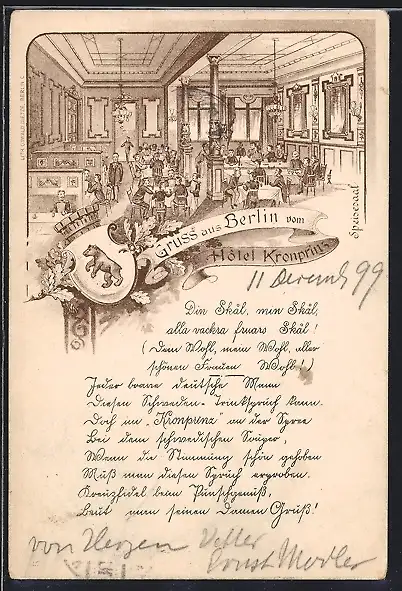 LITH. OSWALD SEETZE, BERLIN C.
Speisesaal
Gruss aus Berlin vom
Hôtel Kronprinz
11 Decemb 99
Din Skål, min Skål,
alla vackra fruars Skål!
(Dein Wohl, mein Wohl, aller
schönen Frauen Wohl!)
Jeder brave deutsche Mann
Diesen Schweden-Trinkspruch kann.
Doch im "Kronprinz" an der Spree
Bei dem schwedischen Souper,
Wenn die Stimmung schön gehoben
Muß man diesen Spruch erproben.
Kreuzfidel beim Punschgenuß,
Beut man seinen Damen Gruß!
von Herzen Vetter
Ernst